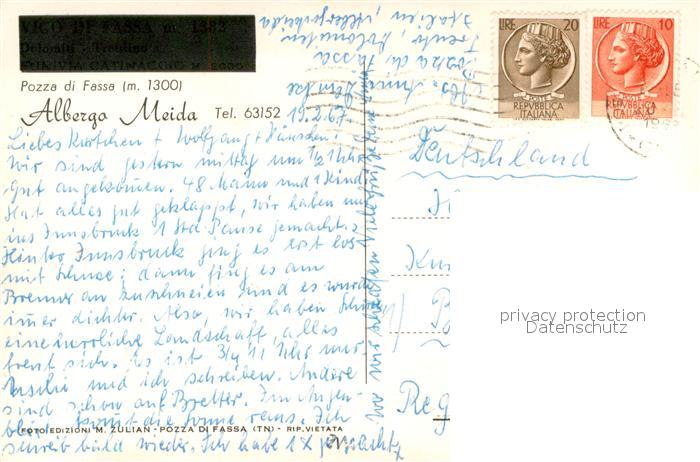 VIGO DI FASSA m. 1382
Dolomiti - Trentino
FUNIVIA CATINACCIO M. 2000
Pozza di Fassa (m. 1300)
Albergo Meida Tel. 63152
19.2.67
Italien, Albergo Meida
Trento, Dolomiten
Pozza di Fassa
LIRE 20
POSTE
REPVBBLICA
ITALIANA
LIRE 10
POSTE
REPVBBLICA
ITALIANA
Deutschland
Liebes Kurtchen + Wolfgang +
Wir sind gestern mittag um 1/2 1 Uhr
gut angekommen. 48 Mann und 1 Kind
Hat alles gut geklappt, wir haben nur
in Innsbruck 1 Std Pause gemacht.
Hinter Innsbruck ging es erst los
mit Schnee; dann fing es am
Brenner an zu schneien und es wurde
immer dichter. Also, wir haben Schnee
eine herrliche Landschaft, alles
freut sich. Es ist 3/4 11 Uhr nur
und ich schreiben. Andere
sind schon auf Bretter. Im Augen-
blick kommt die Sonne raus. Ich
schreib bald wieder. Ich habe 1 X
FOTOEDIZIONI M. ZULIAN - POZZA DI FASSA (TN) - RIP. VIETATA
privacy protection
Datenschutz